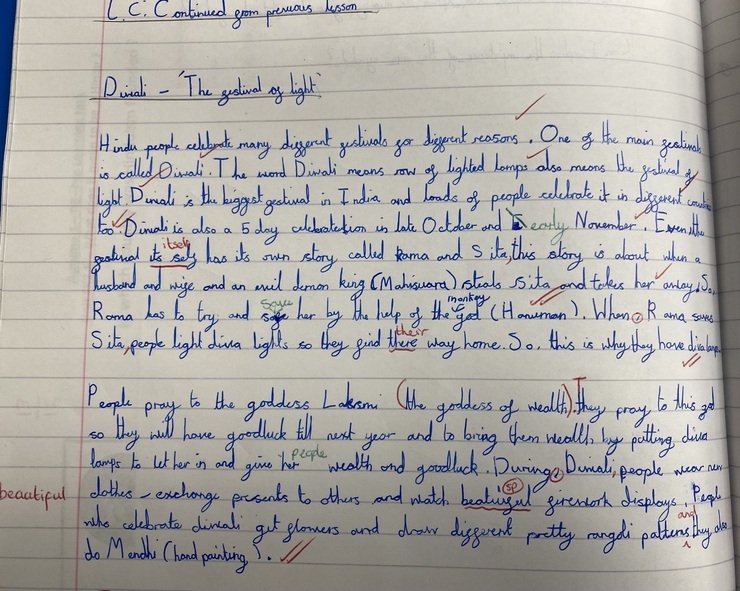 L.C. Continued from previous lesson
Diwali - 'The festival of light'
Hindu people celebrate many different festivals for different reasons. One of the main festivals
is called Diwali. The word Diwali means row of lighted lamps also means the festival of
light. Diwali is the biggest festival in India and loads of people celebrate it in different countries
too. Diwali is also a 5 day celebration in late October and early November. Even the
itself
festival its self has its own story called Rama and Sita, this story is about when a
husband and wife and an evil demon king (Mahisuara) steals Sita and takes her away. So,
save monkey
Rama has to try and her by the help of the god (Hanuman). When Rama saves
their
Sita, people light diva lights so they find there way home. So, this is why they have diva lamps.
People pray to the goddess Laksmi (the goddess of wealth). They pray to this god
so they will have goodluck till next year and to bring them wealth by putting diva
people
lamps to let her in and give her wealth and goodluck. During Diwali, people wear new
sp
beautiful clothes - exchange presents to others and watch beatwiful firework displays. People
and
who celebrate diwali get flowers and draw different pretty rangoli patterns they also
do Mendhi (hand painting).